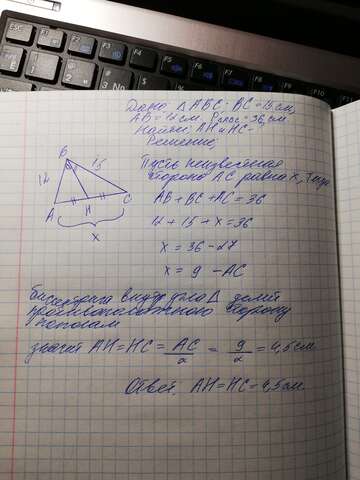 Дано: △ ABC; BC = 15 см,
AB = 12 см, P = 36 см
Найти: AH и HC-
Решение:
Пусть неизвестная
сторона AC равна x, тогда
B
12
15
A
H
C
x
AB + BC + AC = 36
12 + 15 + x = 36
x = 36 - 27
x = 9 - AC
биссектриса внутр угла △ делит
противоположную сторону
пополам
значит AH = HC = AC/2 = 9/2 = 4,5 см
Ответ: AH = HC = 4,5 см